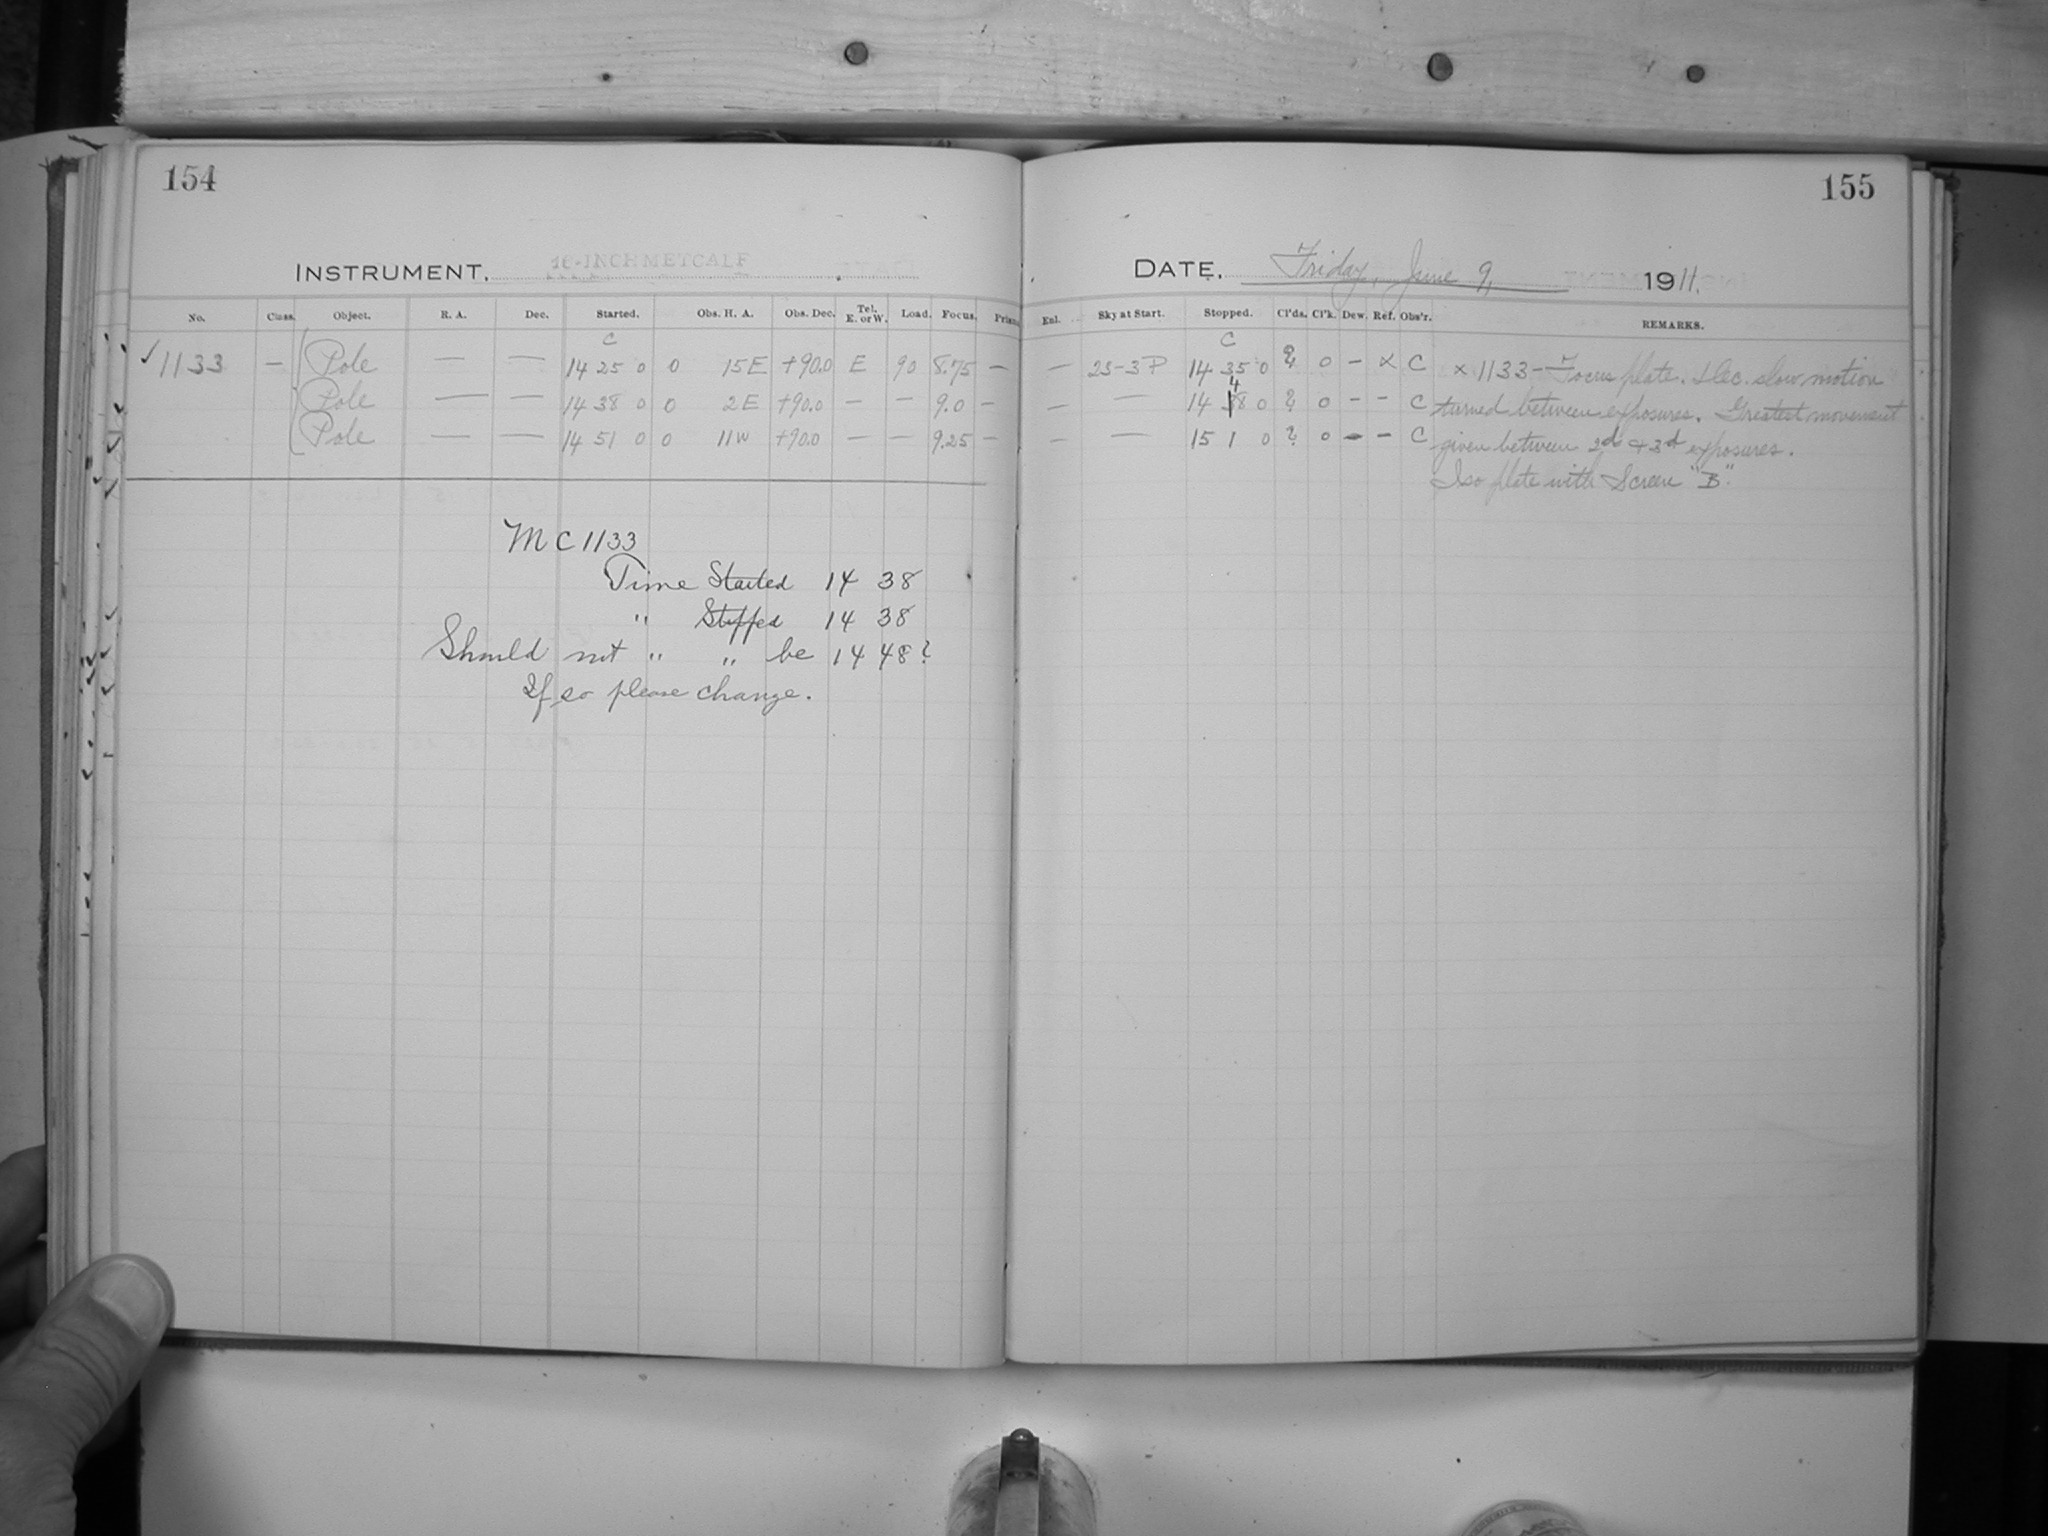 154
INSTRUMENT. 16-INCH METCALF
No. Class. Object. R. A. Dec. Started. Obs. H. A. Obs. Dec. Tel. E. or W. Load. Focus. Prism
C
✓1133 — Pole — — 14 25 0 0 15E +90.0 E 90 8.75 —
Pole — — 14 38 0 0 2E +90.0 — — 9.0 —
Pole — — 14 51 0 0 11W +90.0 — — 9.25 —
MC 1133
Time Started 14 38
" Stopped 14 38
Should not " " be 14 48?
If so please change.
155
DATE. Friday, June 9, 1911.
Enl. Sky at Start. Stopped. Cl'ds. Cl'k. Dew. Ref. Obs'r. REMARKS.
C
— 23-3P 14 35 0 ? 0 — × C × 1133 — Focus plate. Dec. slow motion
— — 14 48 0 ? 0 — — C turned between exposures. Greatest movement
— — 15 1 0 ? 0 — — C given between 2d & 3d exposures.
Iso plate with Screen "B".